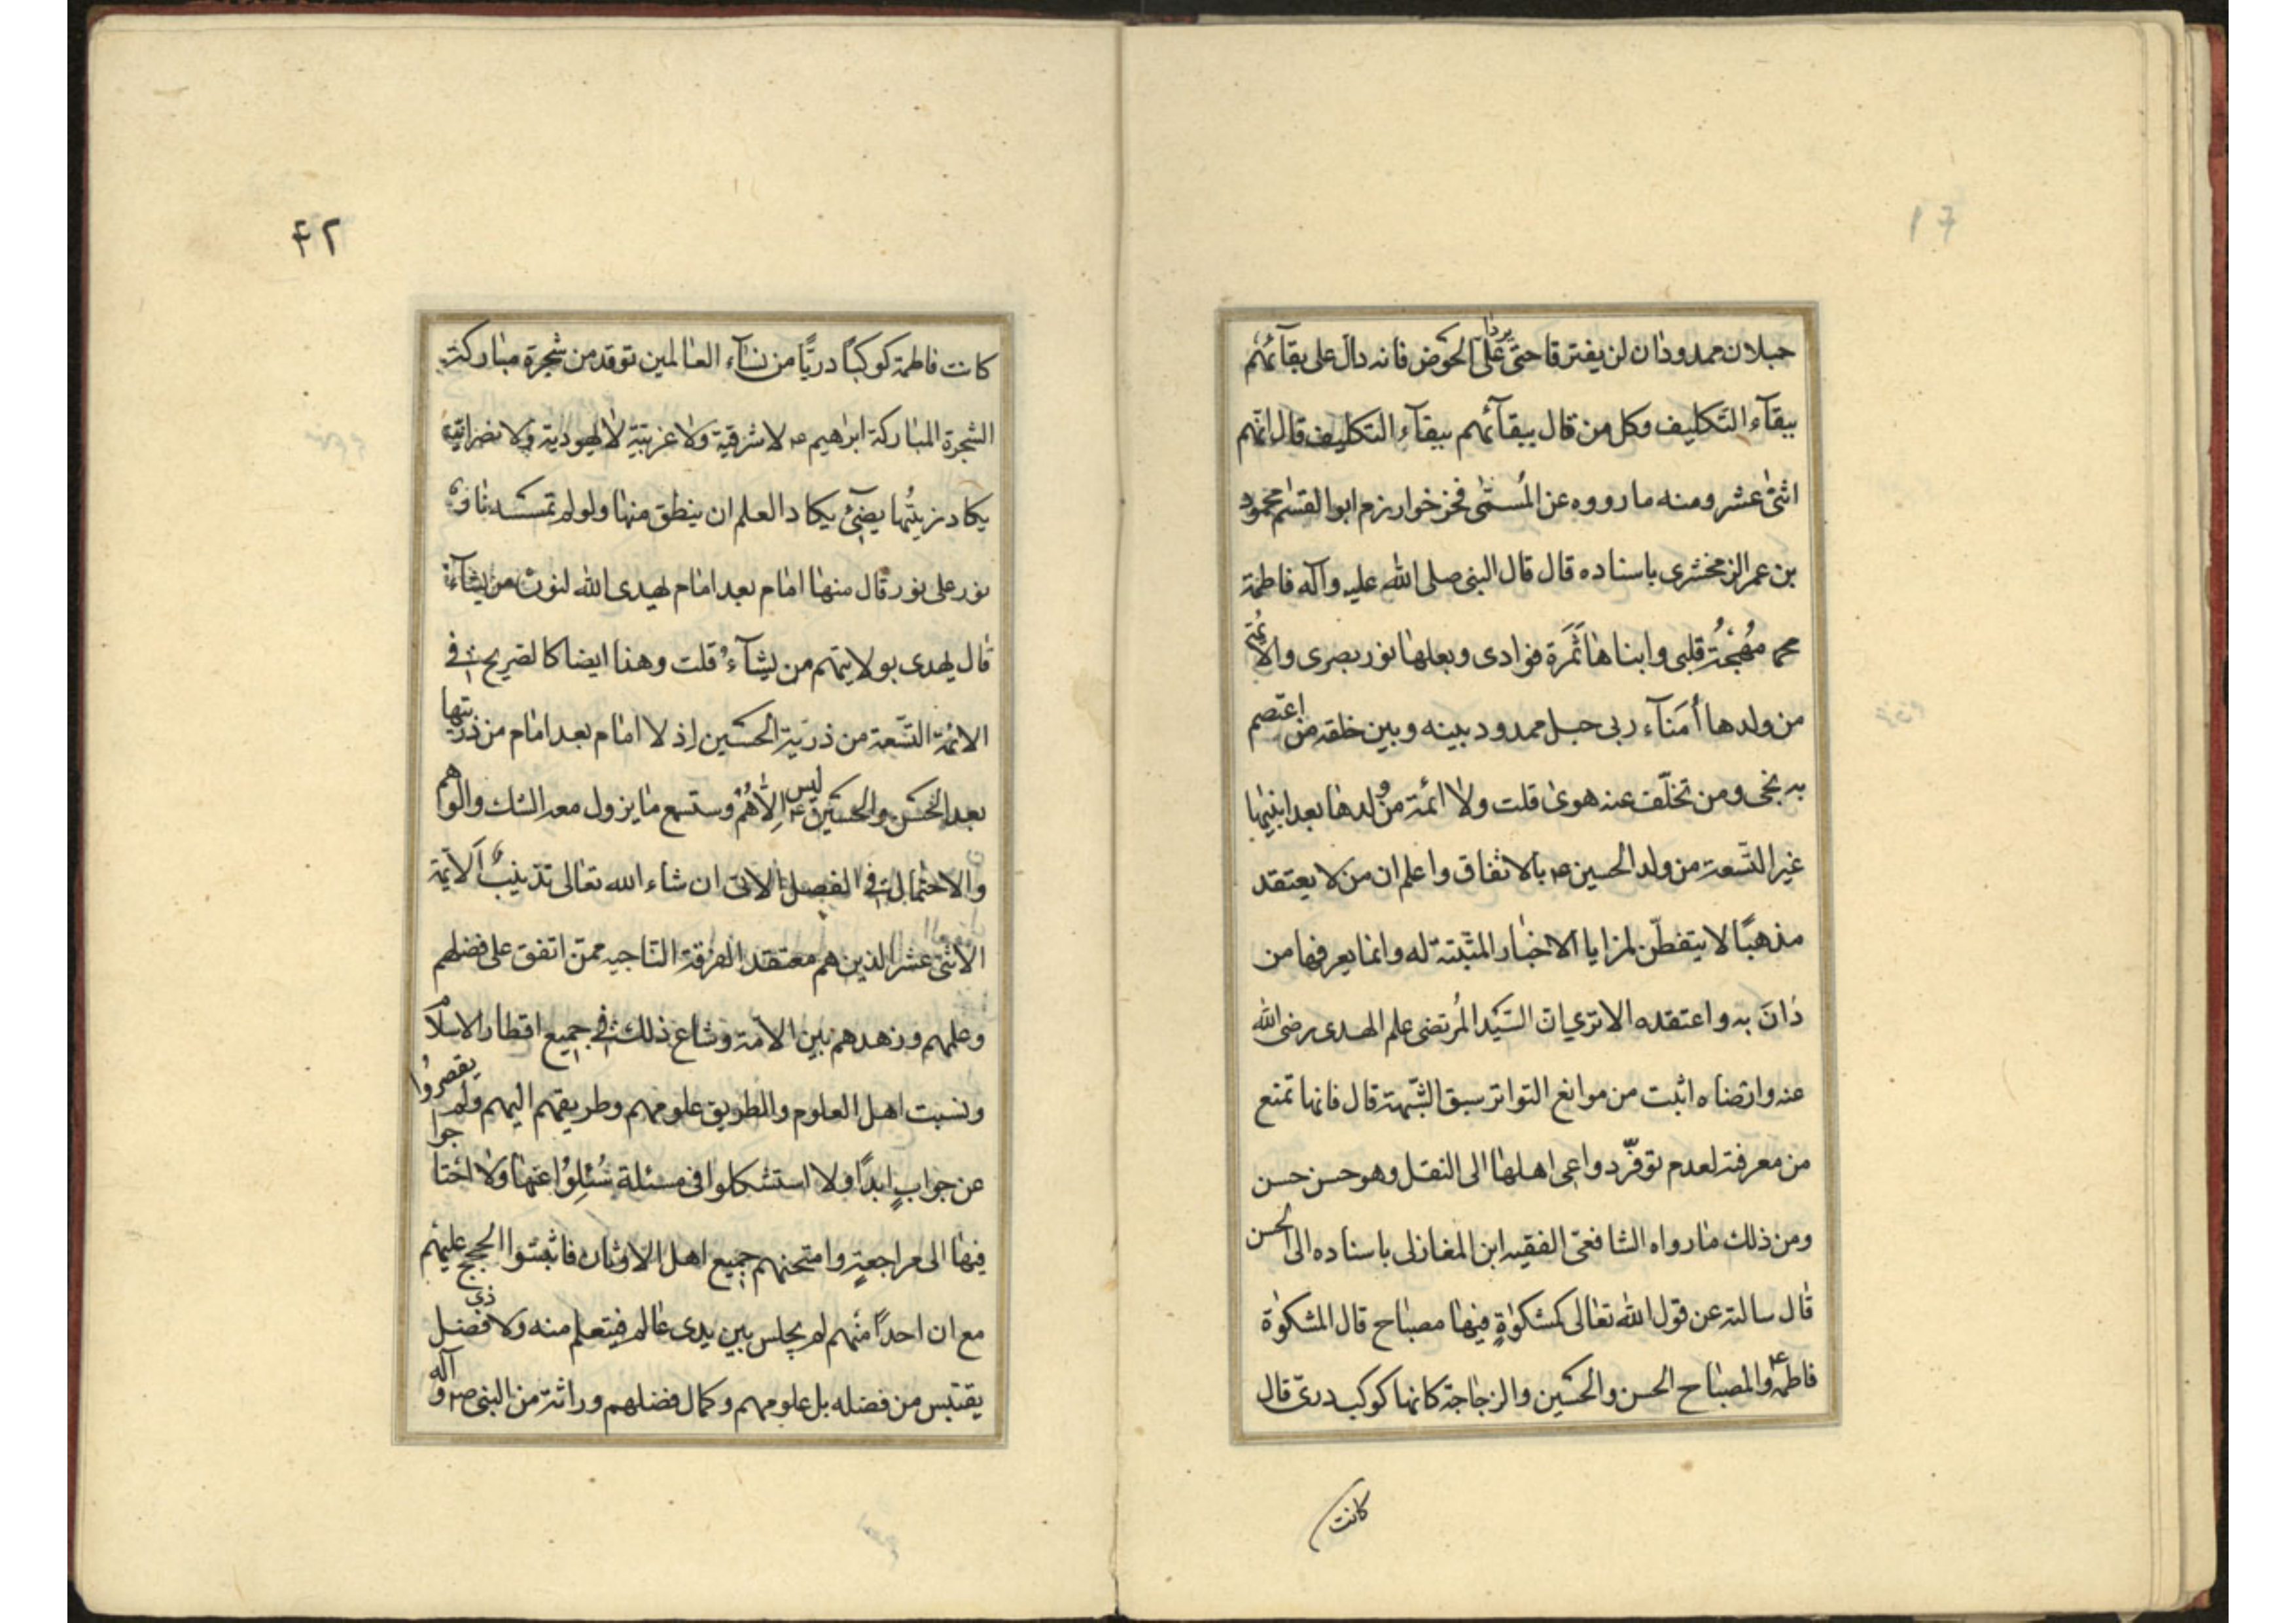 حبلان ممدودان لن يفترقا حتى يردا على الحوض فانه دال على بقائهم
ببقآء التكليف وكل من قال ببقآئهم ببقآء التكليف قال انهم
اثنى عشر ومنه ما رووه عن المُسمّى فخر خوارزم ابو القسم محمود
بن عمر الزمخشرى باسناده قال قال النبى صلى الله عليه وآله فاطمة
مُهْجَةُ قلبى وابناها ثَمَرة فوادى وبعلها نور بصرى والائمة
من ولدها أُمَنآء ربى حبل ممدود بينه وبين خلقه من اعتصم
به نجى ومن تخلّف عنه هوى قلت ولا ائمة من ولدها بعد ابنيها
غير التسعة من ولد الحسين ع بالاتفاق واعلم ان من لا يعتقد
مذهبًا لا يتفطّن لمزايا الاخبار المثبتة له وانما يعرفها من
دانَ به واعتقده الا ترى ان السّيد المُرتضى علم الهدى رضى الله
عنه وارضاه اثبت من موانع التواتر سبق الشّبهة قال فانها تمنع
من معرفته لعدم توفّر دواعى اهلها الى النقل وهو حسن حسن
ومن ذلك ما رواه الشافعىّ الفقيه ابن المغازلى باسناده الى الحسن
قال سالته عن قول الله تعالى كمشكوٰةٍ فيها مصباح قال المشكوٰة
فاطمة ع والمصباح الحسن والحسين والزجاجة كانها كوكب درىّ قال
كانت
٤٢
كانت فاطمة كوكبًا دريًّا من نسآء العالمين توقد من شجرة مباركة
الشجرة المباركة ابراهيم ع لا شرقية ولا غربيّة لا يهودية ولا نصرانية
يكاد زيتُها يضىٓئ يكاد العلم ان ينطق منها ولو لم تمسسه نار
نور على نور قال منها امام بعد امام يهدى الله لنوره من يشآء
قال يهدى بولايتهم من يشآء قلت وهذا ايضا كالصريح فى
الائمة التّسعة من ذرية الحسين إذ لا امام بعد امام من ذريتها
بعد الحسن والحسين ع ليس إلّا هُمْ وستسمع ما يزول معه الشك والوهم
والاحتمال فى الفصل الاتى ان شاء الله تعالى تذنيبٌ الائمة
الاثنى عشر الذين هم معتقد الفرقة الناجيه ممن اتفق على فضلهم
وعلمهم وزهدهم بين الامة وشاع ذلك فى جميع اقطار الاسلام
ونسبت اهل العلوم والطريق علومهم وطريقهم اليهم ولم يقصروُا
عن جوابٍ ابدًا ولا استشكلوا فى مسئلة سُئِلوُا عنها ولا احتاجوا
فيها الى مراجعةٍ وامتحنهم جميع اهل الاوثان فاثبتوا الحجج عليهم
مع ان احدًا منهم لم يجلس بين يدى عالم فيتعلم منه ولا ذى فضل
يقتبس من فضله بل علومهم وكمال فضلهم وراثة من النبى ص وآله